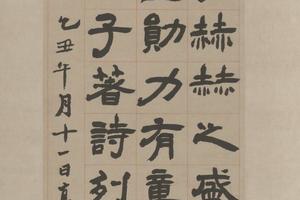 赫赫之盛
勛力有童
子著詩列
乙丑年月十一日